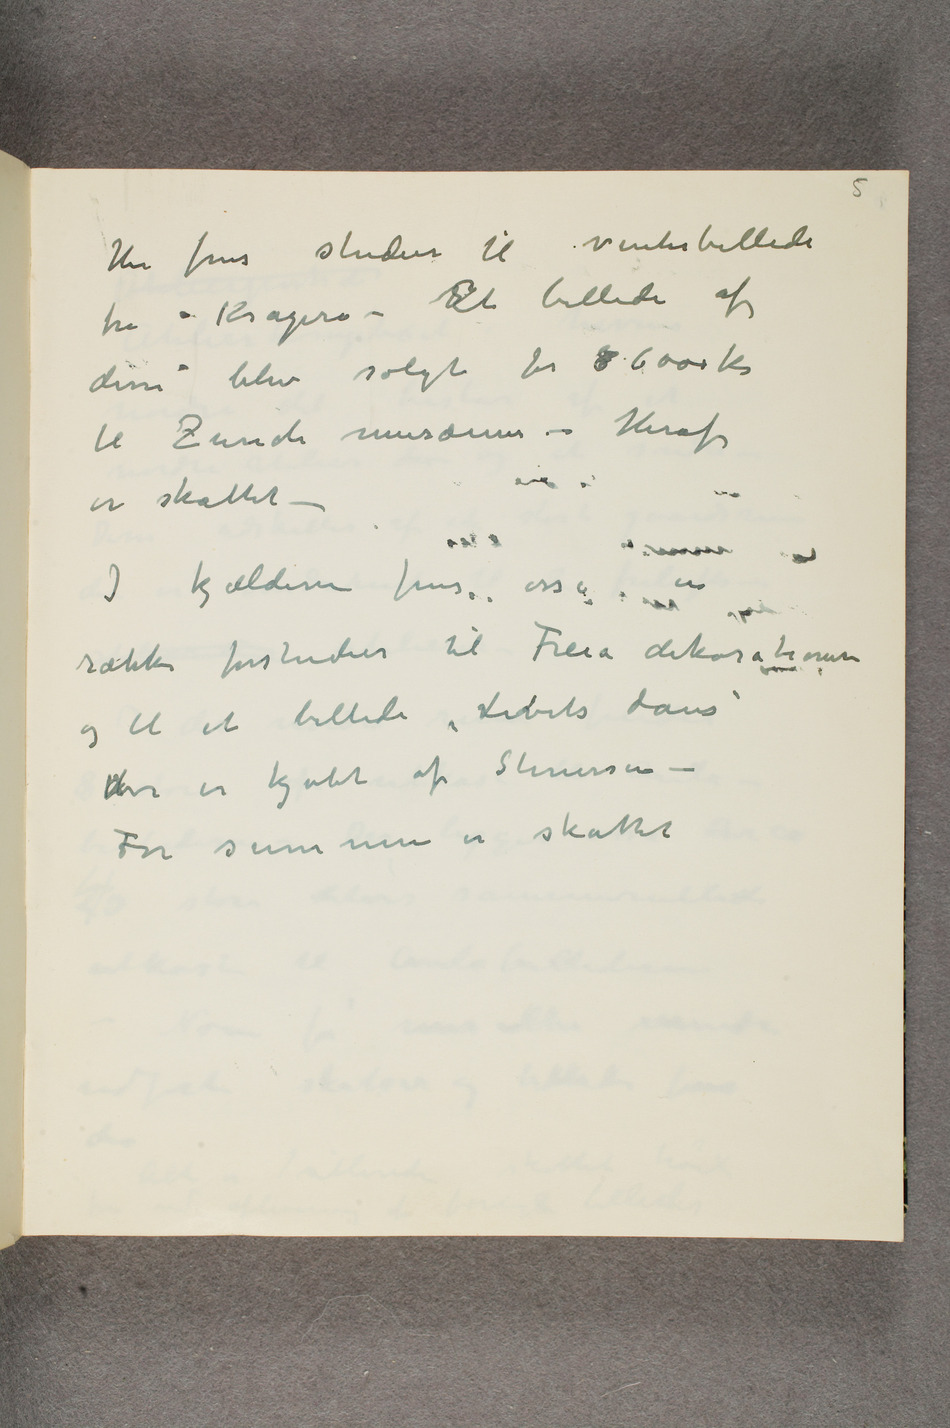 5
Her fins studier til vinterbillede
fra – Kragerø – Et billede af
disse blev solgt for 8600 kr
til Zurich musæum – Heraf
er skattet –
I kjælderen fins, også en
række forstudier til Freia dekorationerne
og til et billede „Livets dans“
der er kjøbt af Stenersen –
For summen er skattet